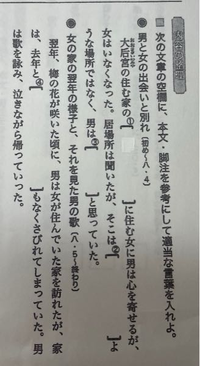 次の文章の空欄に、本文・脚注を参考にして適当な言葉を入れよ。
男と女の出会いと別れ(初め~八・4)
大后宮の住む家の①[
]に住む女に男は心を寄せるが、
女はいなくなった。居場所は聞いたが、そこは②[
]よ
うな場所ではなく、男は③[
]と思っていた。
女の家の翌年の様子と、それを見た男の歌(八・5~終わり)
翌年、梅の花が咲いた頃に、男は女が住んでいた家を訪れたが、家
は、去年と④[
]もなくさびれてしまっていた。男
は歌を詠み、泣きながら帰っていった。